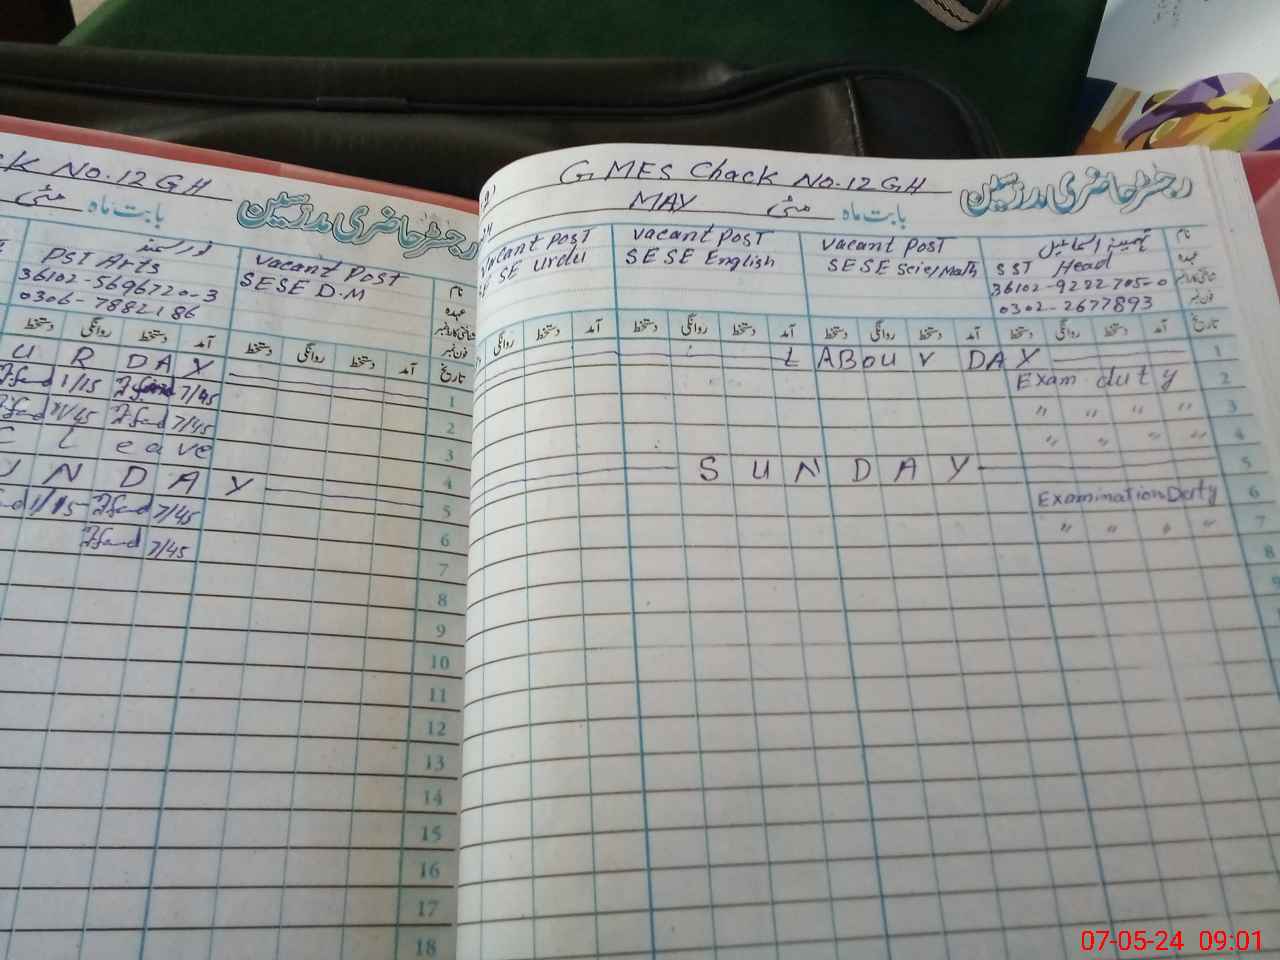 CK No.12 GH
رجسٹر حاضری مدرسین
بابت ماہ مئی
PST Arts
36102-5696720-3
0306-7882186
Vacant Post
SESE D.M
نام
عہدہ
فون نمبر
دستخط روانگی دستخط آمد دستخط روانگی دستخط آمد تاریخ
U R DAY 1
1/15 7/45 2
7/45 3
C L eave
N D A Y 4
1/15 7/45 5
7/45 6
7
8
9
10
11
12
13
14
15
16
17
18
G. MES Chack No.12 GH
رجسٹر حاضری مدرسین
MAY
بابت ماہ مئی
Vacant Post
SE Urdu
Vacant Post
SESE English
Vacant Post
SESE Scie/Math
SST Head
36102-9282705-0
0302-2677893
نام
عہدہ
فون نمبر
روانگی دستخط آمد دستخط روانگی دستخط آمد دستخط روانگی دستخط آمد دستخط روانگی دستخط آمد تاریخ
LABOUR DAY 1
Exam duty 2
" " " " 3
" " " " 4
SUNDAY 5
Examination Duty 6
" " " " 7
8
07-05-24 09:01